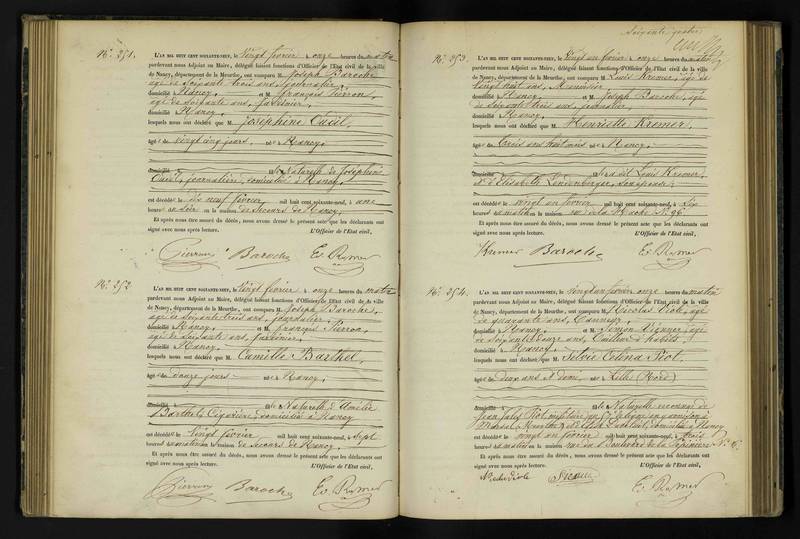 Soixante quatre
N°. 251.
L'AN MIL HUIT CENT SOIXANTE-NEUF, le vingt février à onze heures du matin
pardevant nous Adjoint au Maire, délégué faisant fonctions d'Officier de l'Etat civil de la ville
de Nancy, département de la Meurthe, ont comparu M. Joseph Baroche
agé de soixante trois ans, journalier,
domicilié à Nancy, et M. François Pierron,
agé de soixante ans,
domicilié à Nancy,
lesquels nous ont déclaré que M. Joséphine
âgé de vingt cinq jours, né à Nancy,
domicilié Naturelle de Joséphine
journalière, domiciliée à Nancy,
est décédé le dix neuf février, mil huit cent soixante-neuf, à une
heure du soir en la maison de secours de Nancy.
Et après nous être assuré du décès, nous avons dressé le présent acte que les déclarants ont
signé avec nous après lecture. L'Officier de l'Etat civil,
Pierron Baroche
N°. 252
L'AN MIL HUIT CENT SOIXANTE-NEUF, le vingt février à onze heures du matin
pardevant nous Adjoint au Maire, délégué faisant fonctions d'Officier de l'Etat civil de la ville
de Nancy, département de la Meurthe, ont comparu M. Joseph Baroche,
agé de soixante trois ans, journalier,
domicilié à Nancy, et M. François Pierron,
agé de soixante ans,
domicilié à Nancy,
lesquels nous ont déclaré que M. Camille Barthel,
âgé de douze jours né à Nancy,
domicilié Naturelle d'Amélie
Barthel, domiciliée à Nancy
est décédé le vingt février mil huit cent soixante-neuf, à sept
heures du matin en la maison de secours de Nancy.
Et après nous être assuré du décès, nous avons dressé le présent acte que les déclarants ont
signé avec nous après lecture. L'Officier de l'Etat civil,
Pierron Baroche
N°. 253.
L'AN MIL HUIT CENT SOIXANTE-NEUF, le vingt un février à onze heures du matin
pardevant nous Adjoint au Maire, délégué faisant fonctions d'Officier de l'Etat civil de la ville
de Nancy, département de la Meurthe, ont comparu M. Louis Kremer, agé de
vingt huit ans,
domicilié à Nancy, et M. Joseph Baroche, agé
de soixante trois ans, journalier,
domicilié à Nancy,
lesquels nous ont déclaré que M. Henriette Kremer,
âgé de trois ans huit mois né à Nancy,
domicilié Louis Kremer,
et d'Elisabeth son épouse
est décédé le vingt un février, mil huit cent soixante-neuf, à six
heures du matin rue de la Hache N° 96.
Et après nous être assuré du décès, nous avons dressé le présent acte que les déclarants ont
signé avec nous après lecture. L'Officier de l'Etat civil,
Kremer Baroche
N°. 254.
L'AN MIL HUIT CENT SOIXANTE-NEUF, le vingt un février à onze heures du matin
pardevant nous Adjoint au Maire, délégué faisant fonctions d'Officier de l'Etat civil de la ville
de Nancy, département de la Meurthe, ont comparu M. Nicolas agé
de quarante ans,
domicilié à Nancy, et M. Simon agé
de soixante douze ans, tailleur d'habits
domicilié à Nancy,
lesquels nous ont déclaré que M. Silvie Célina Piot,
âgé de deux ans et demi, né à Lille (Nord)
domicilié Naturelle reconnue de
domiciliée à Nancy
est décédé le vingt un février mil huit cent soixante-neuf, à trois
heures du matin de la Pépinière N°
Et après nous être assuré du décès, nous avons dressé le présent acte que les déclarants ont
signé avec nous après lecture. L'Officier de l'Etat civil,